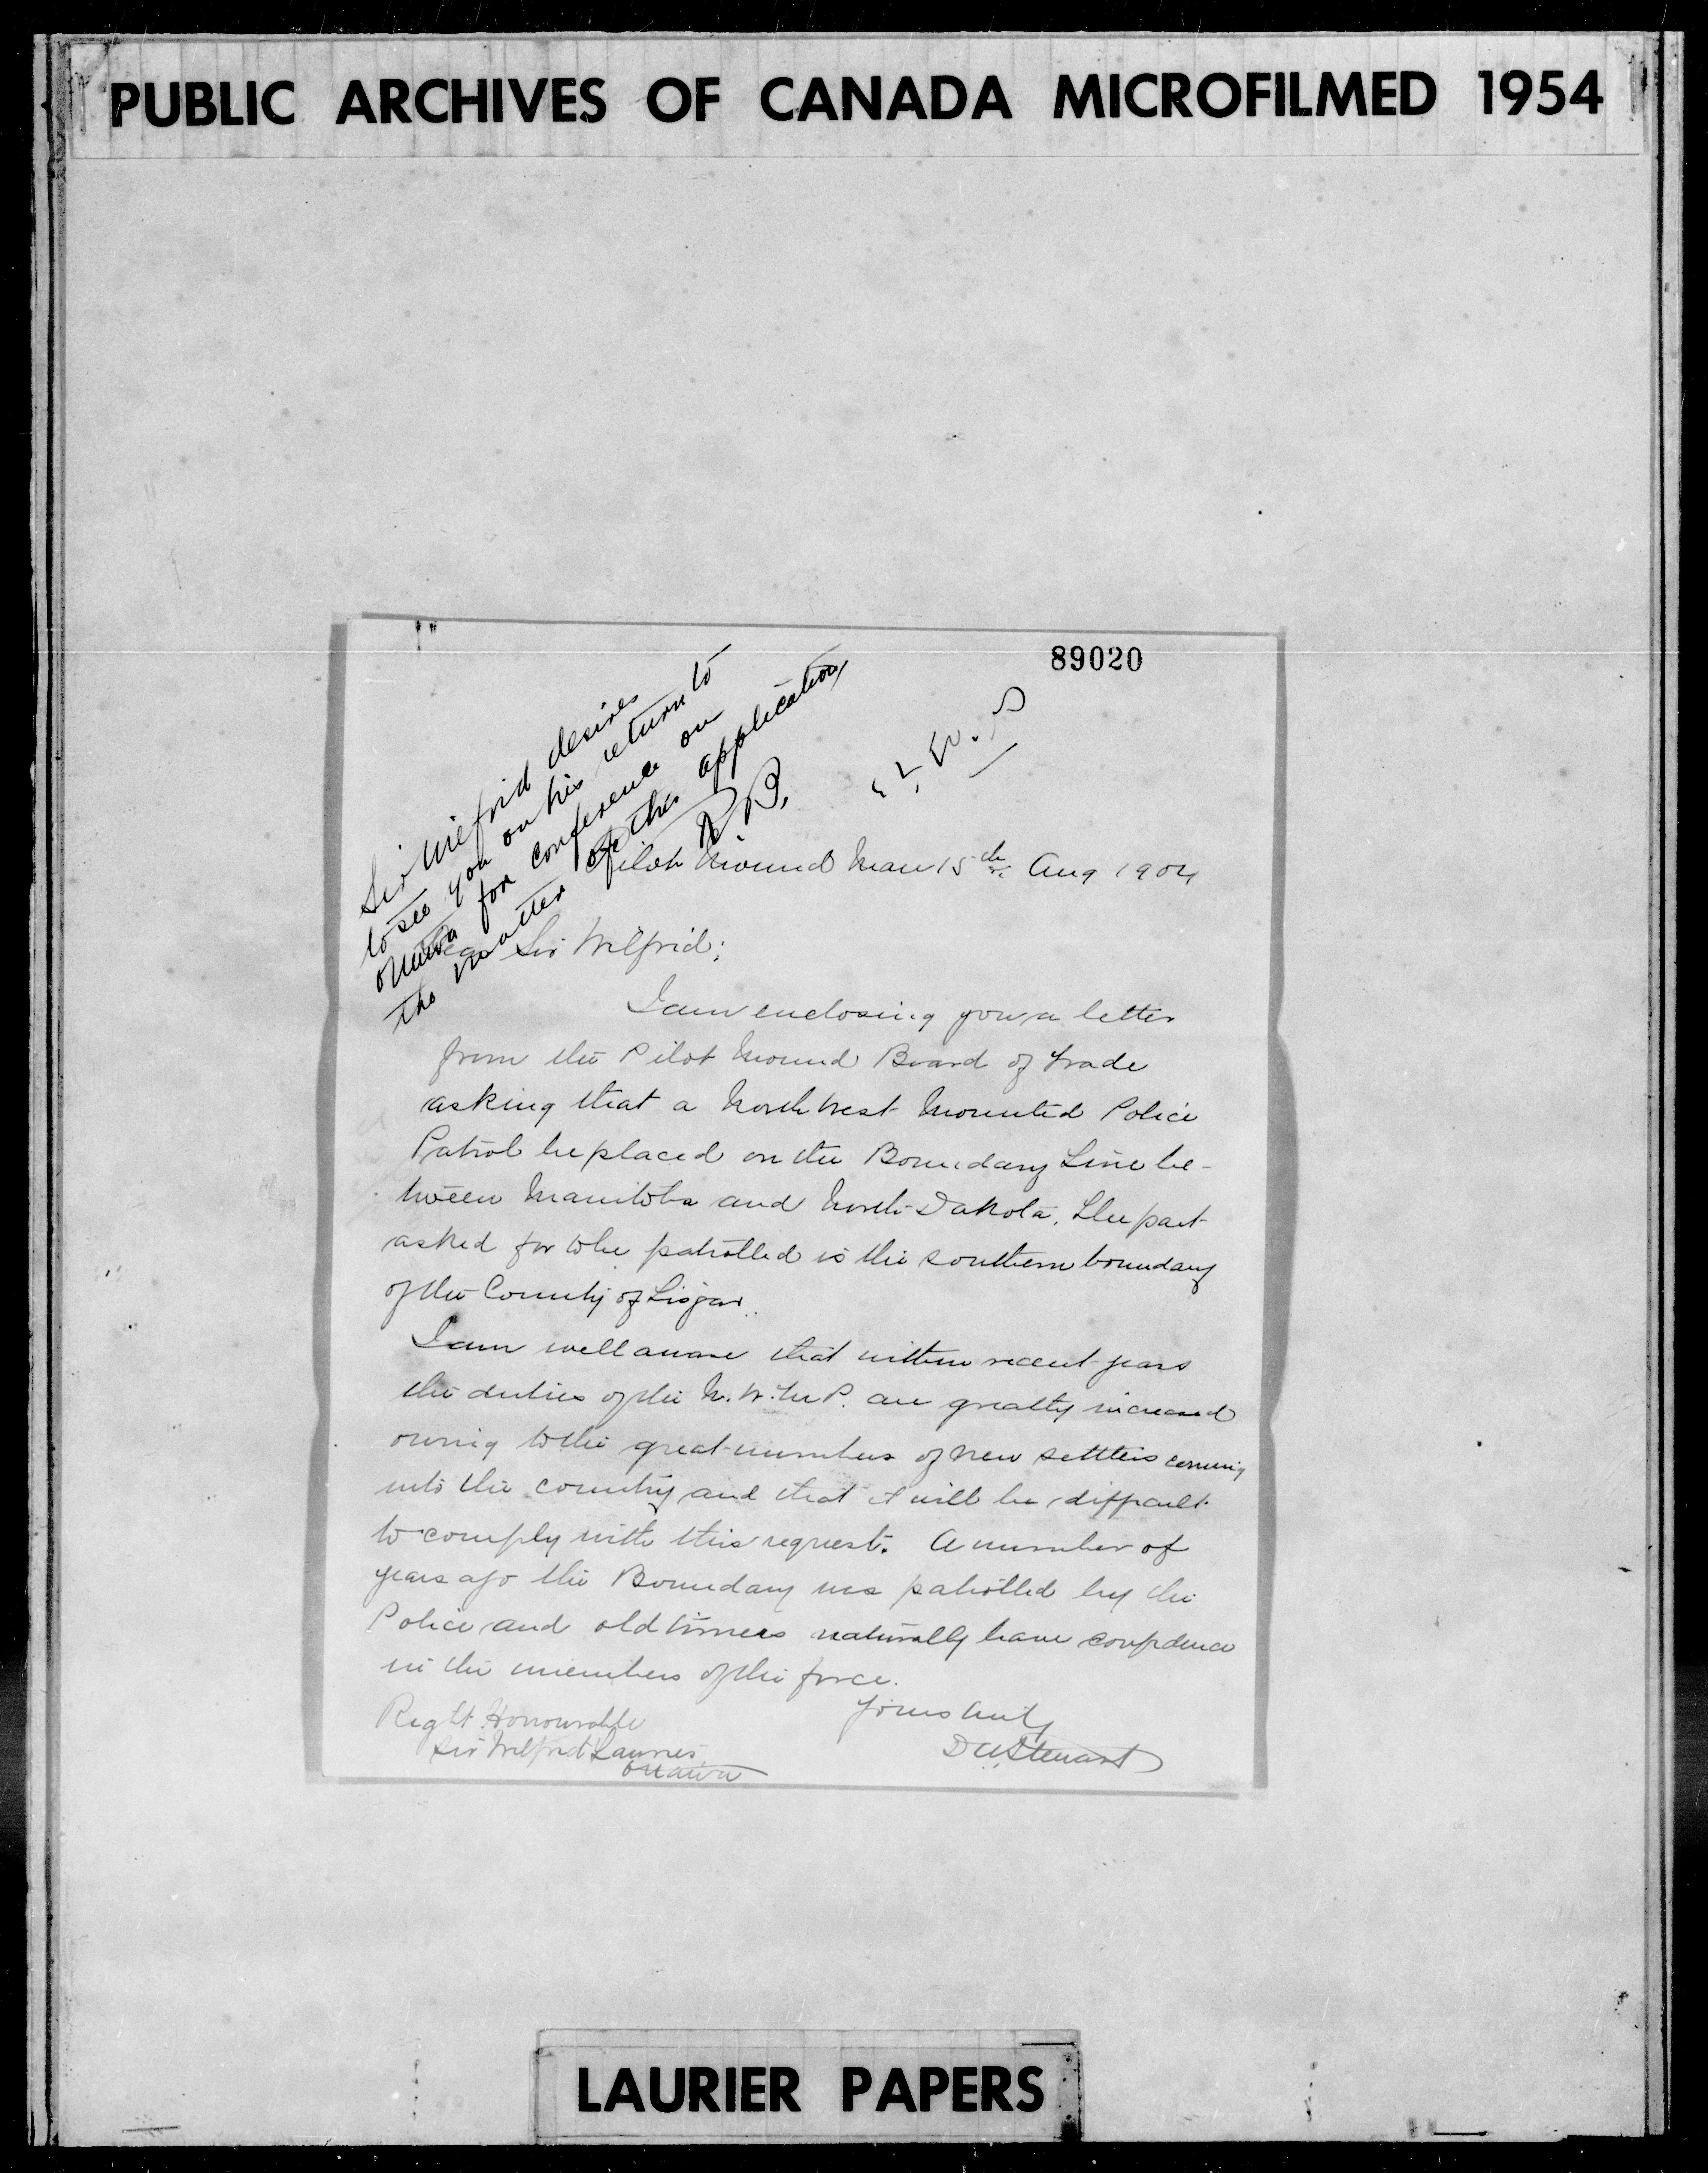 PUBLIC ARCHIVES OF CANADA MICROFILMED 1954
89020
Sir Wilfrid desires
to see you on his return to
Ottawa for conference on
the matter of this application
R.B.
Pilot Mound Man 15th Aug 1904
Dear Sir Wilfrid;
I am enclosing you a letter
from the Pilot Mound Board of Trade
asking that a North West Mounted Police
Patrol be placed on the Boundary Line be-
tween Manitoba and North Dakota. The part
asked for to be patrolled is the southern boundary
of the County of Lisgar.
I am well aware that within recent years
the duties of the N.W.M.P. are greatly increased
owing to the great numbers of new settlers coming
into the country and that it will be difficult
to comply with this request. A number of
years ago the Boundary was patrolled by the
Police and old timers naturally have confidence
in the members of the force.
Yours truly
D A Stewart
Right Honourable
Sir Wilfrid Laurier
Ottawa
LAURIER PAPERS